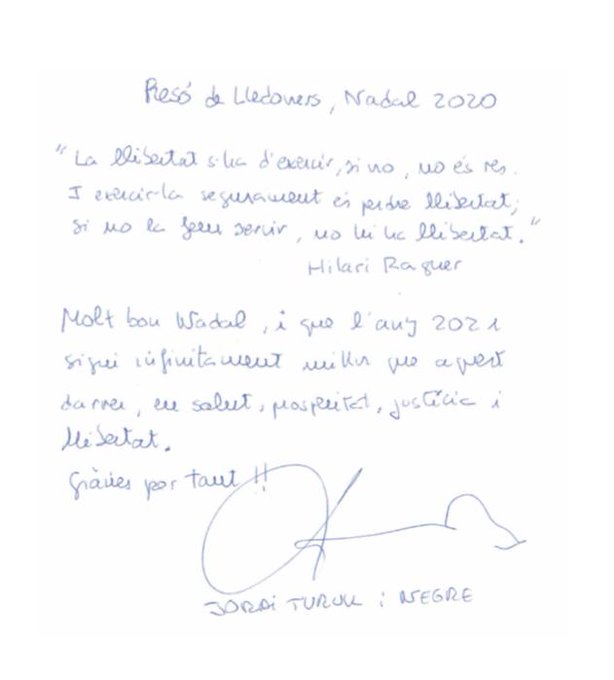 Presó de Lledoners, Nadal 2020
"La llibertat s'ha d'exercir, si no, no és res.
I exercir-la segurament és perdre llibertat;
si no la feu servir, no hi ha llibertat."
Hilari Raguer
Molt bon Nadal, i que l'any 2021
sigui infinitament millor que aquest
darrer, en salut, prosperitat, justícia i
llibertat.
Gràcies per tant!!
JORDI TURULL i NEGRE